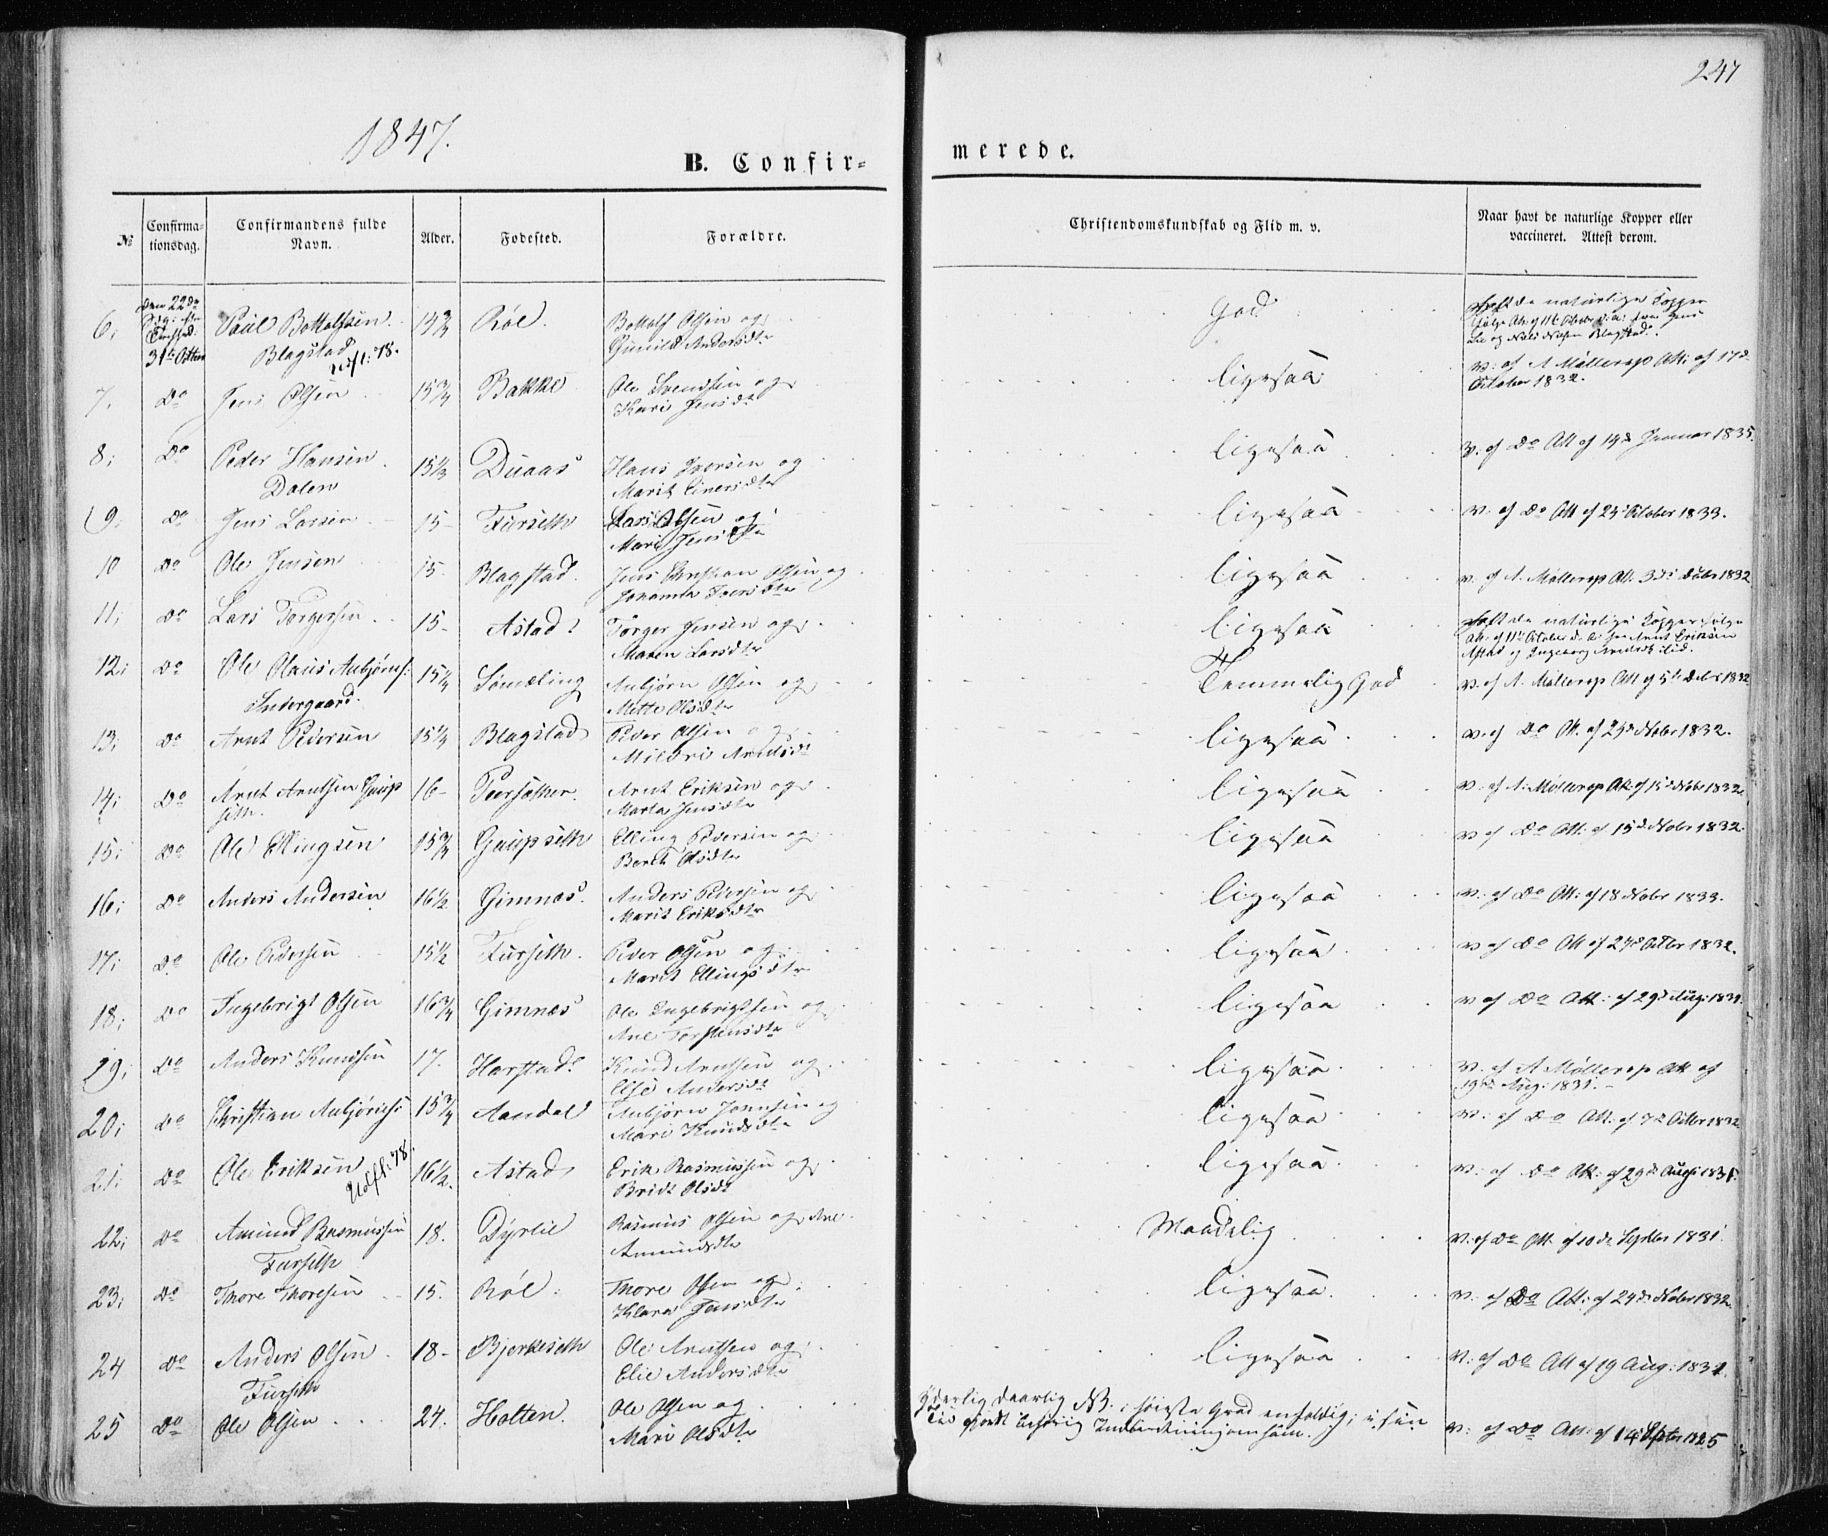 247
1847.
B. Confir=
merede.
№
Confirma-
tionsdag.
Confirmandens fulde
Navn.
Alder.
Fødested.
Forældre.
Christendomskundskab og Flid m. v.
Naar havt de naturlige Kopper eller
vaccineret. Attest derom.
6, Den 22de Paul Bottolfsen 14¾ Röl. Bottolf Olsen og God havt de naturlige Kopper
31te Blagstad Gunild Andersdtr
7, Do Jens Olsen 15¾ Bakke Ole Svendsen og ligesaa v. af A Møllerop Att: 17de
Kari Jensdtr October 1832.
8; Do Peder Hansen 15⅓ Duaas Hans Iversen og ligesaa v. af Do Att af 14de Januar 1835.
Dalen Marit Einersdtr
9; Do Jens Larsen 15 Furseth Lars Olsen og ligesaa v. af Do Att af 23 October 1833.
Mari Jensdtr
10 Do Ole Jensen 15 Blagstad. Jens Christian Olsen og ligesaa v. af A. Møllerop Att. 3de 1832
Johanna Iversdtr
11; Do Lars Torgersen 15 Astad Torger Jensen og ligesaa havt de naturlige Kopper
Maren Larsdtr Astad og Ingeborg
12; Do Ole Olaus Anbjørns: 15¼ Sömeling Anbjørn Olsen og Temmelig God v. af A. Møllerop Att af 5te 1832
Indergaard. Mette Olsdtr
13; Do Arnt Pedersen 15¼ Blagstad Peder Olsen og ligesaa v. af Do Att. af 23de Novbr 1832.
Mildri Arntsdtr
14; Do Arnt Arntsen Gaup 16 Arnt Eriksen og ligesaa v. af A. Møllerop Att. af 15de Novbr 1832
seth. Marta Jensdtr
15; Do Ole Ellingsen 15¾ Gaupseth Elling Pedersen og ligesaa v af Do Att: af 15de Novbr 1832.
Berit Olsdtr
16; Do Anders Andersen 16½ Gimnæs. Anders Pedersen og ligesaa v. af Do Att: af 18 Novbr 1833.
Marit Eriksdtr
17; Do Ole Pedersen 15½ Furseth. Peder Olsen og ligesaa v af Do Att af 27de Octbr 1832.
Marit Ellingsdtr
18; Do Ingebrigt Olsen 16¾ Gimnæs Ole Ingebrigtsen og ligesaa v af Do Att: af 29de Aug: 1831.
Ane Torstensdtr
19; Do Anders Knudsen 17. Harstad Knud Arntsen og ligesaa v. af A Møllerop Att af
Else Andersdt 19de Aug: 1831.
20; Do Christian Anbjørns: 15¾ Aandal Anbjørn Johnsen og ligesaa v. af Do Att: af 7de Octbr 1832
Mari Knudsdtr
21; Do Ole Eriksen 16½. Astad Erik Rasmussen og ligesaa v. af Do Att: af 29de Aug: 1831.
Bridt Olsdt
22; Do Amund Rasmussen 18. Dyrlie Rasmus Olsen og Ane Maadelig v. af Do Att. af 10de Septbr 1831.
Furseth Amundsdtr
23; Do Thore Thoresen 15. Röl. Thore Olsen og ligesaa v. af Do Att: af 24de Novbr 1832.
Klara Jensdtr
24 Do Anders Olsen 18 Bjerkeseth Ole Arntsen og ligesaa v. af Do Att af 19 Aug: 1831.
Furseth Elie Andersdtr
25 Do Ole Olsen 24. Holten. Ole Olsen og yderlig daarlig NB. i høieste Grad enfoldig; i sin v. af Do Att: af 14 Septbr 1825
Mari Olsdtr Tid gjordt behørig Indberetning om ham.